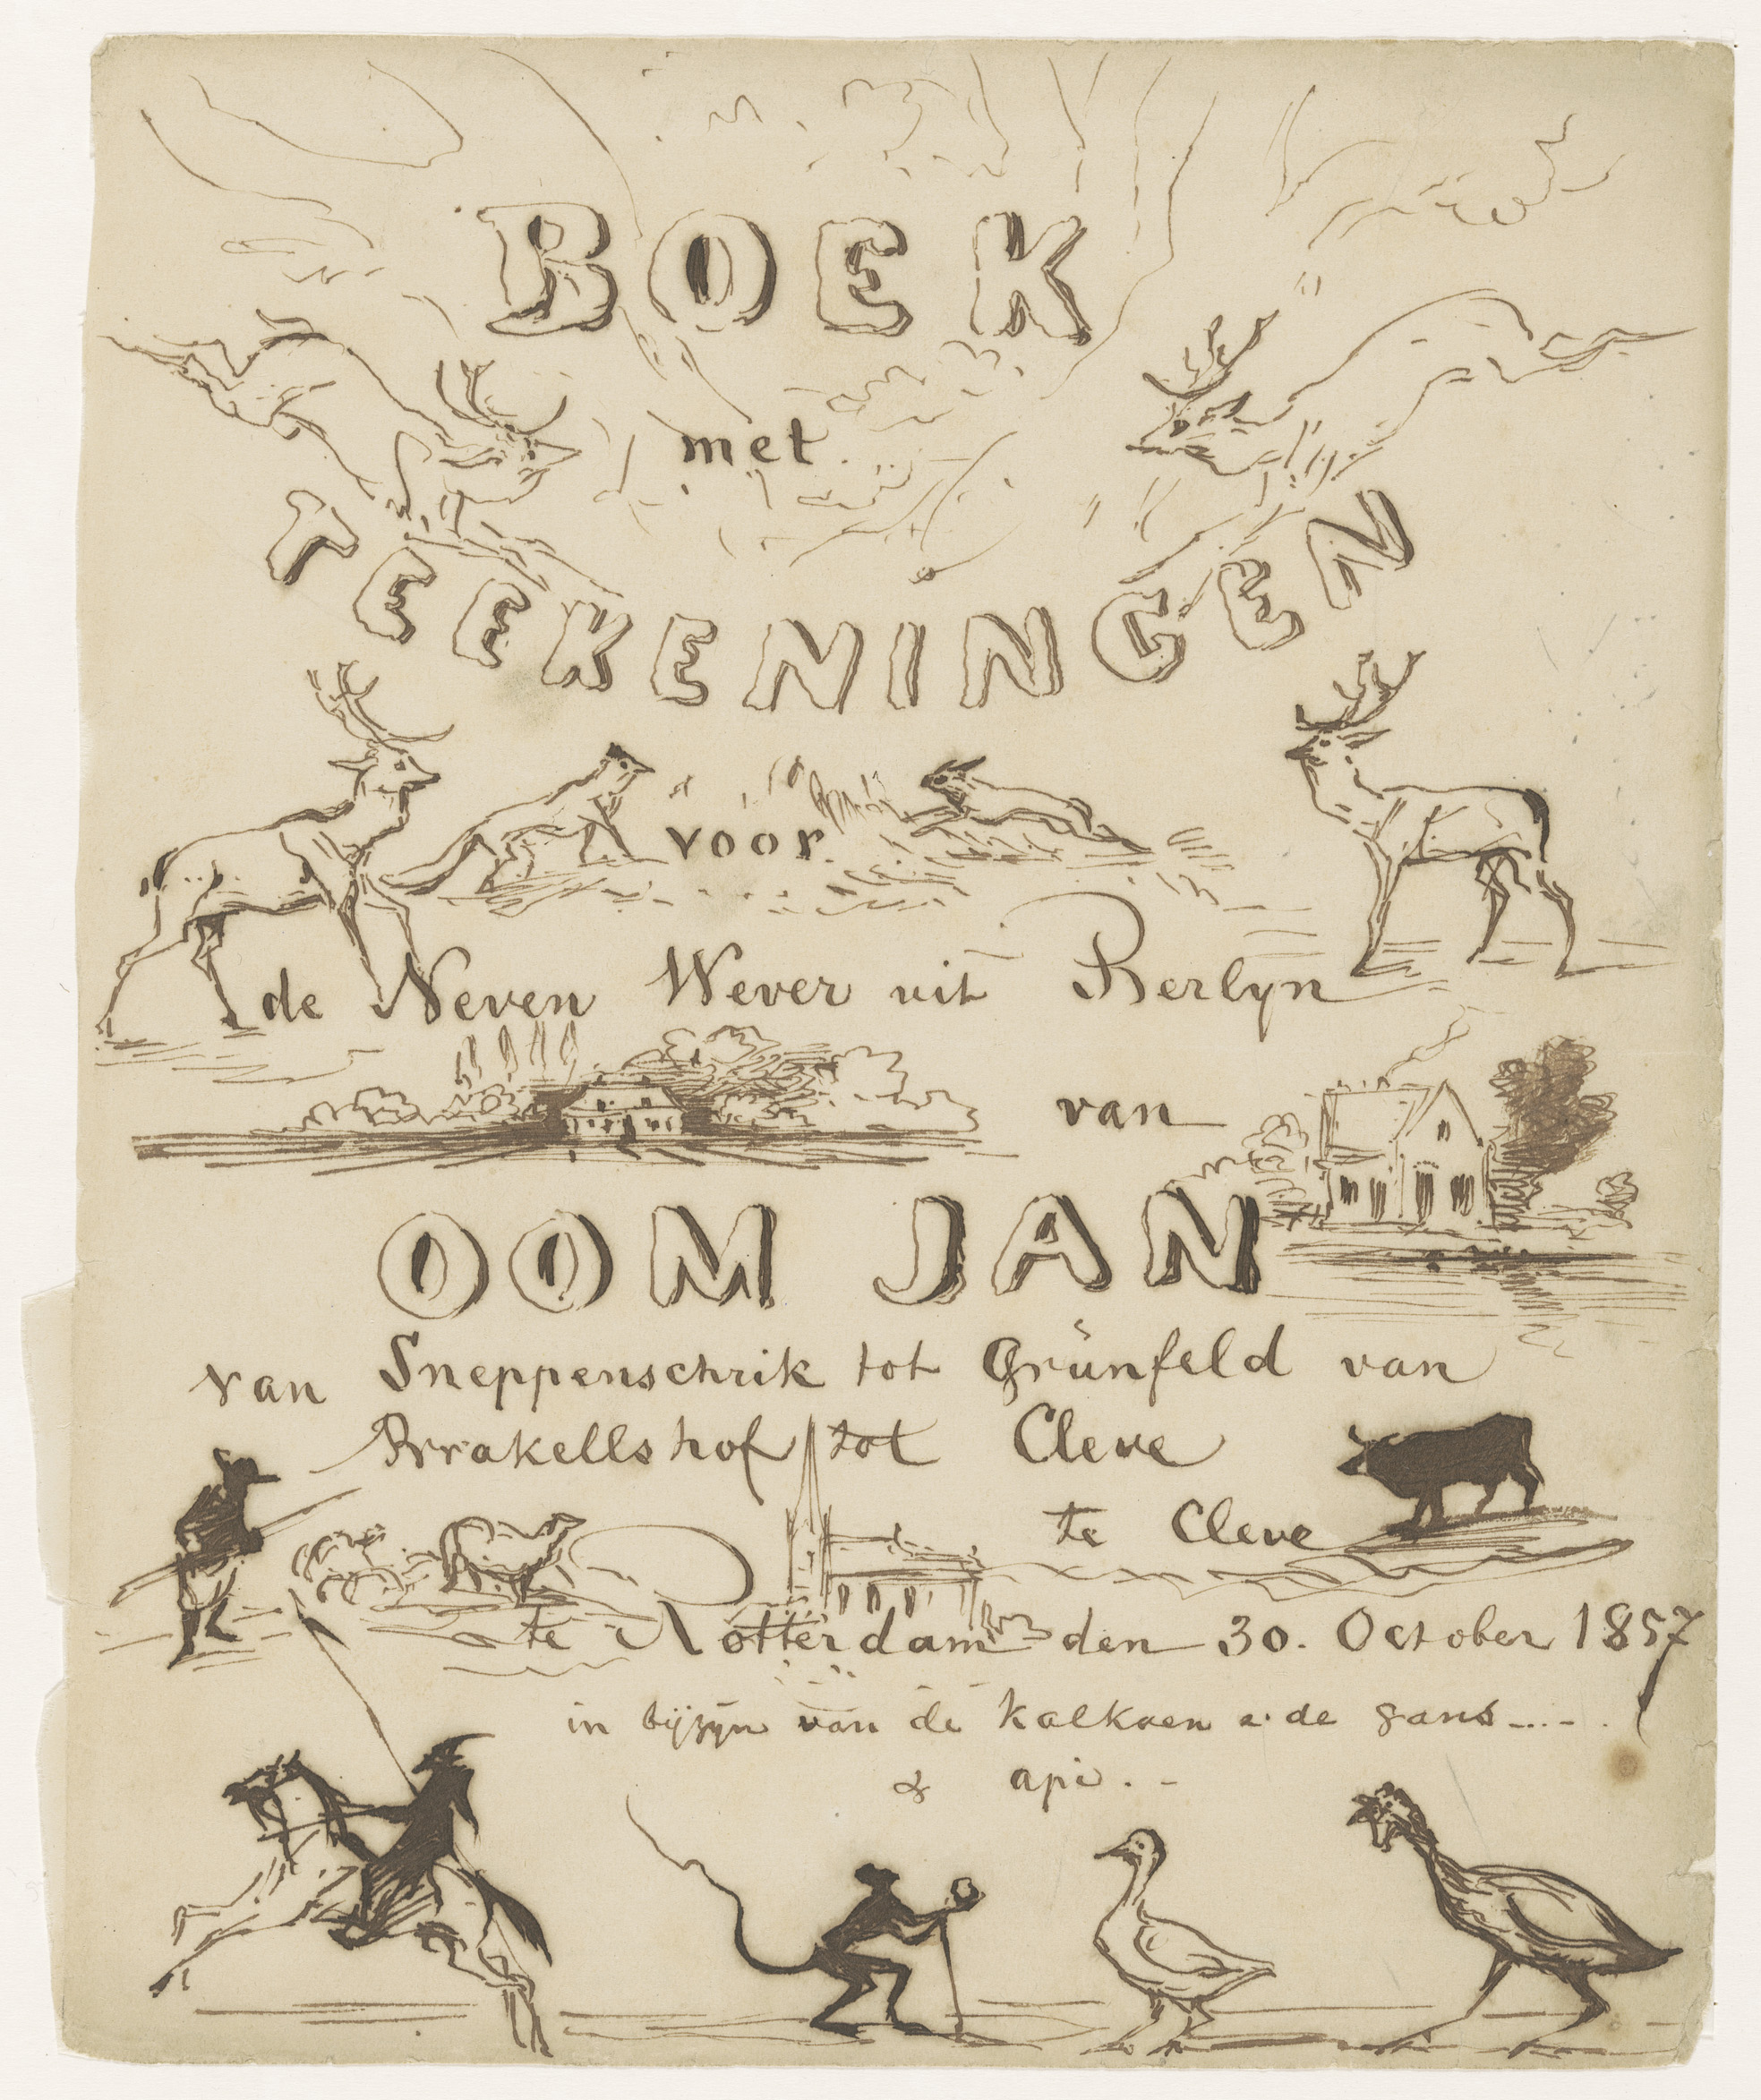 BOEK
met
TEEKENINGEN
voor
de Neven Wever uit Berlyn
van
OOM JAN
van Sneppenschrik tot Grünfeld van
Brakellshof tot Cleve
te Cleve
te Rotterdam den 30. October 1857
in bijzyn van de kalkoen e. de gans.....
& api. -